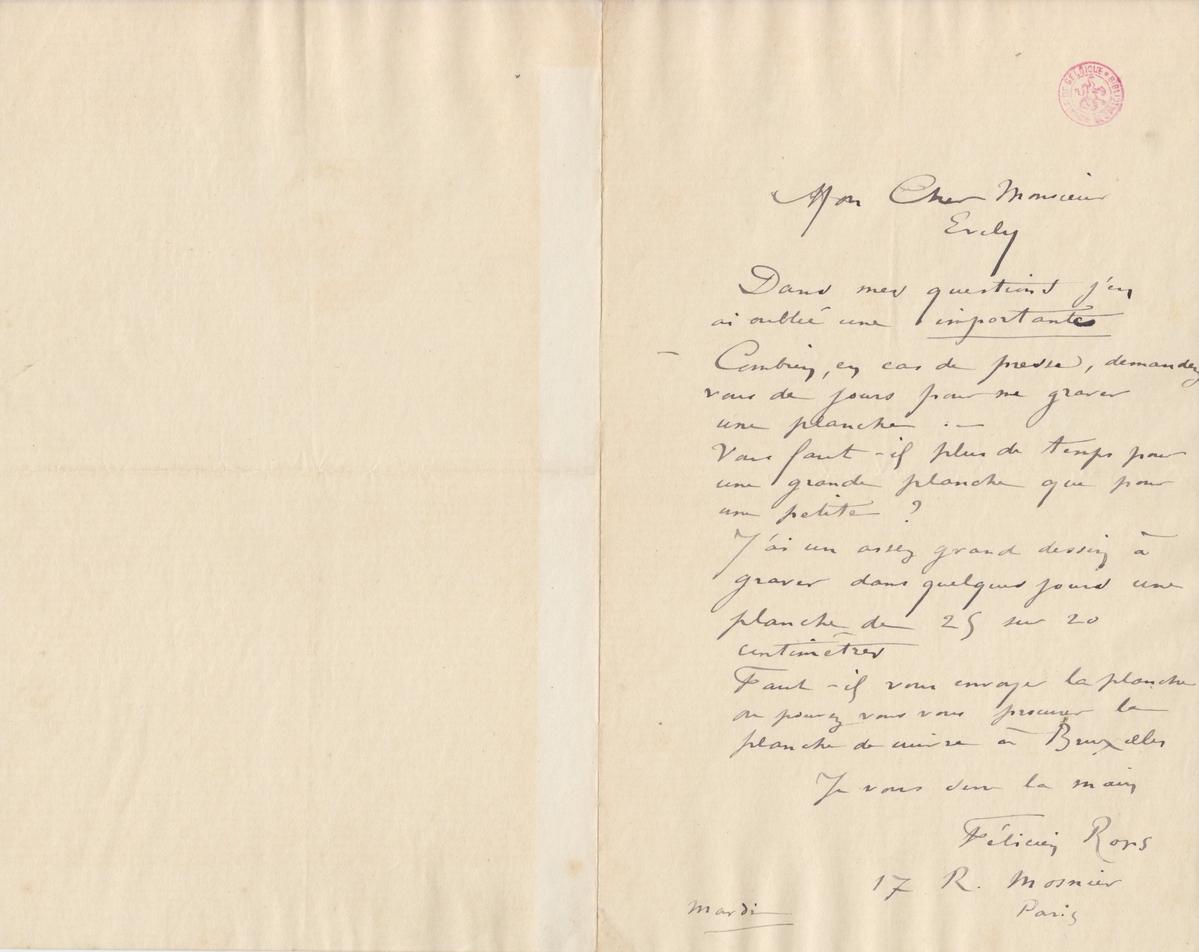 BIBLIOTHÈQUE DE BELGIQUE
Mon Cher Monsieur
Evely
Dans mes questions j'en
ai oublié une importante
– Combien, en cas de presse, demandez
vous de jours pour me graver
une planche . –
Vous faut-il plus de temps pour
une grande planche que pour
une petite ?
J'ai un assez grand dessin à
graver dans quelques jours une
planche de 25 sur 20
centimètres
Faut-il vous envoyer la planche
ou pouvez vous vous procurer la
planche de cuivre à Bruxelles
Je vous serre la main
Félicien Rops
17 R. Mosnier
Paris
Mardi